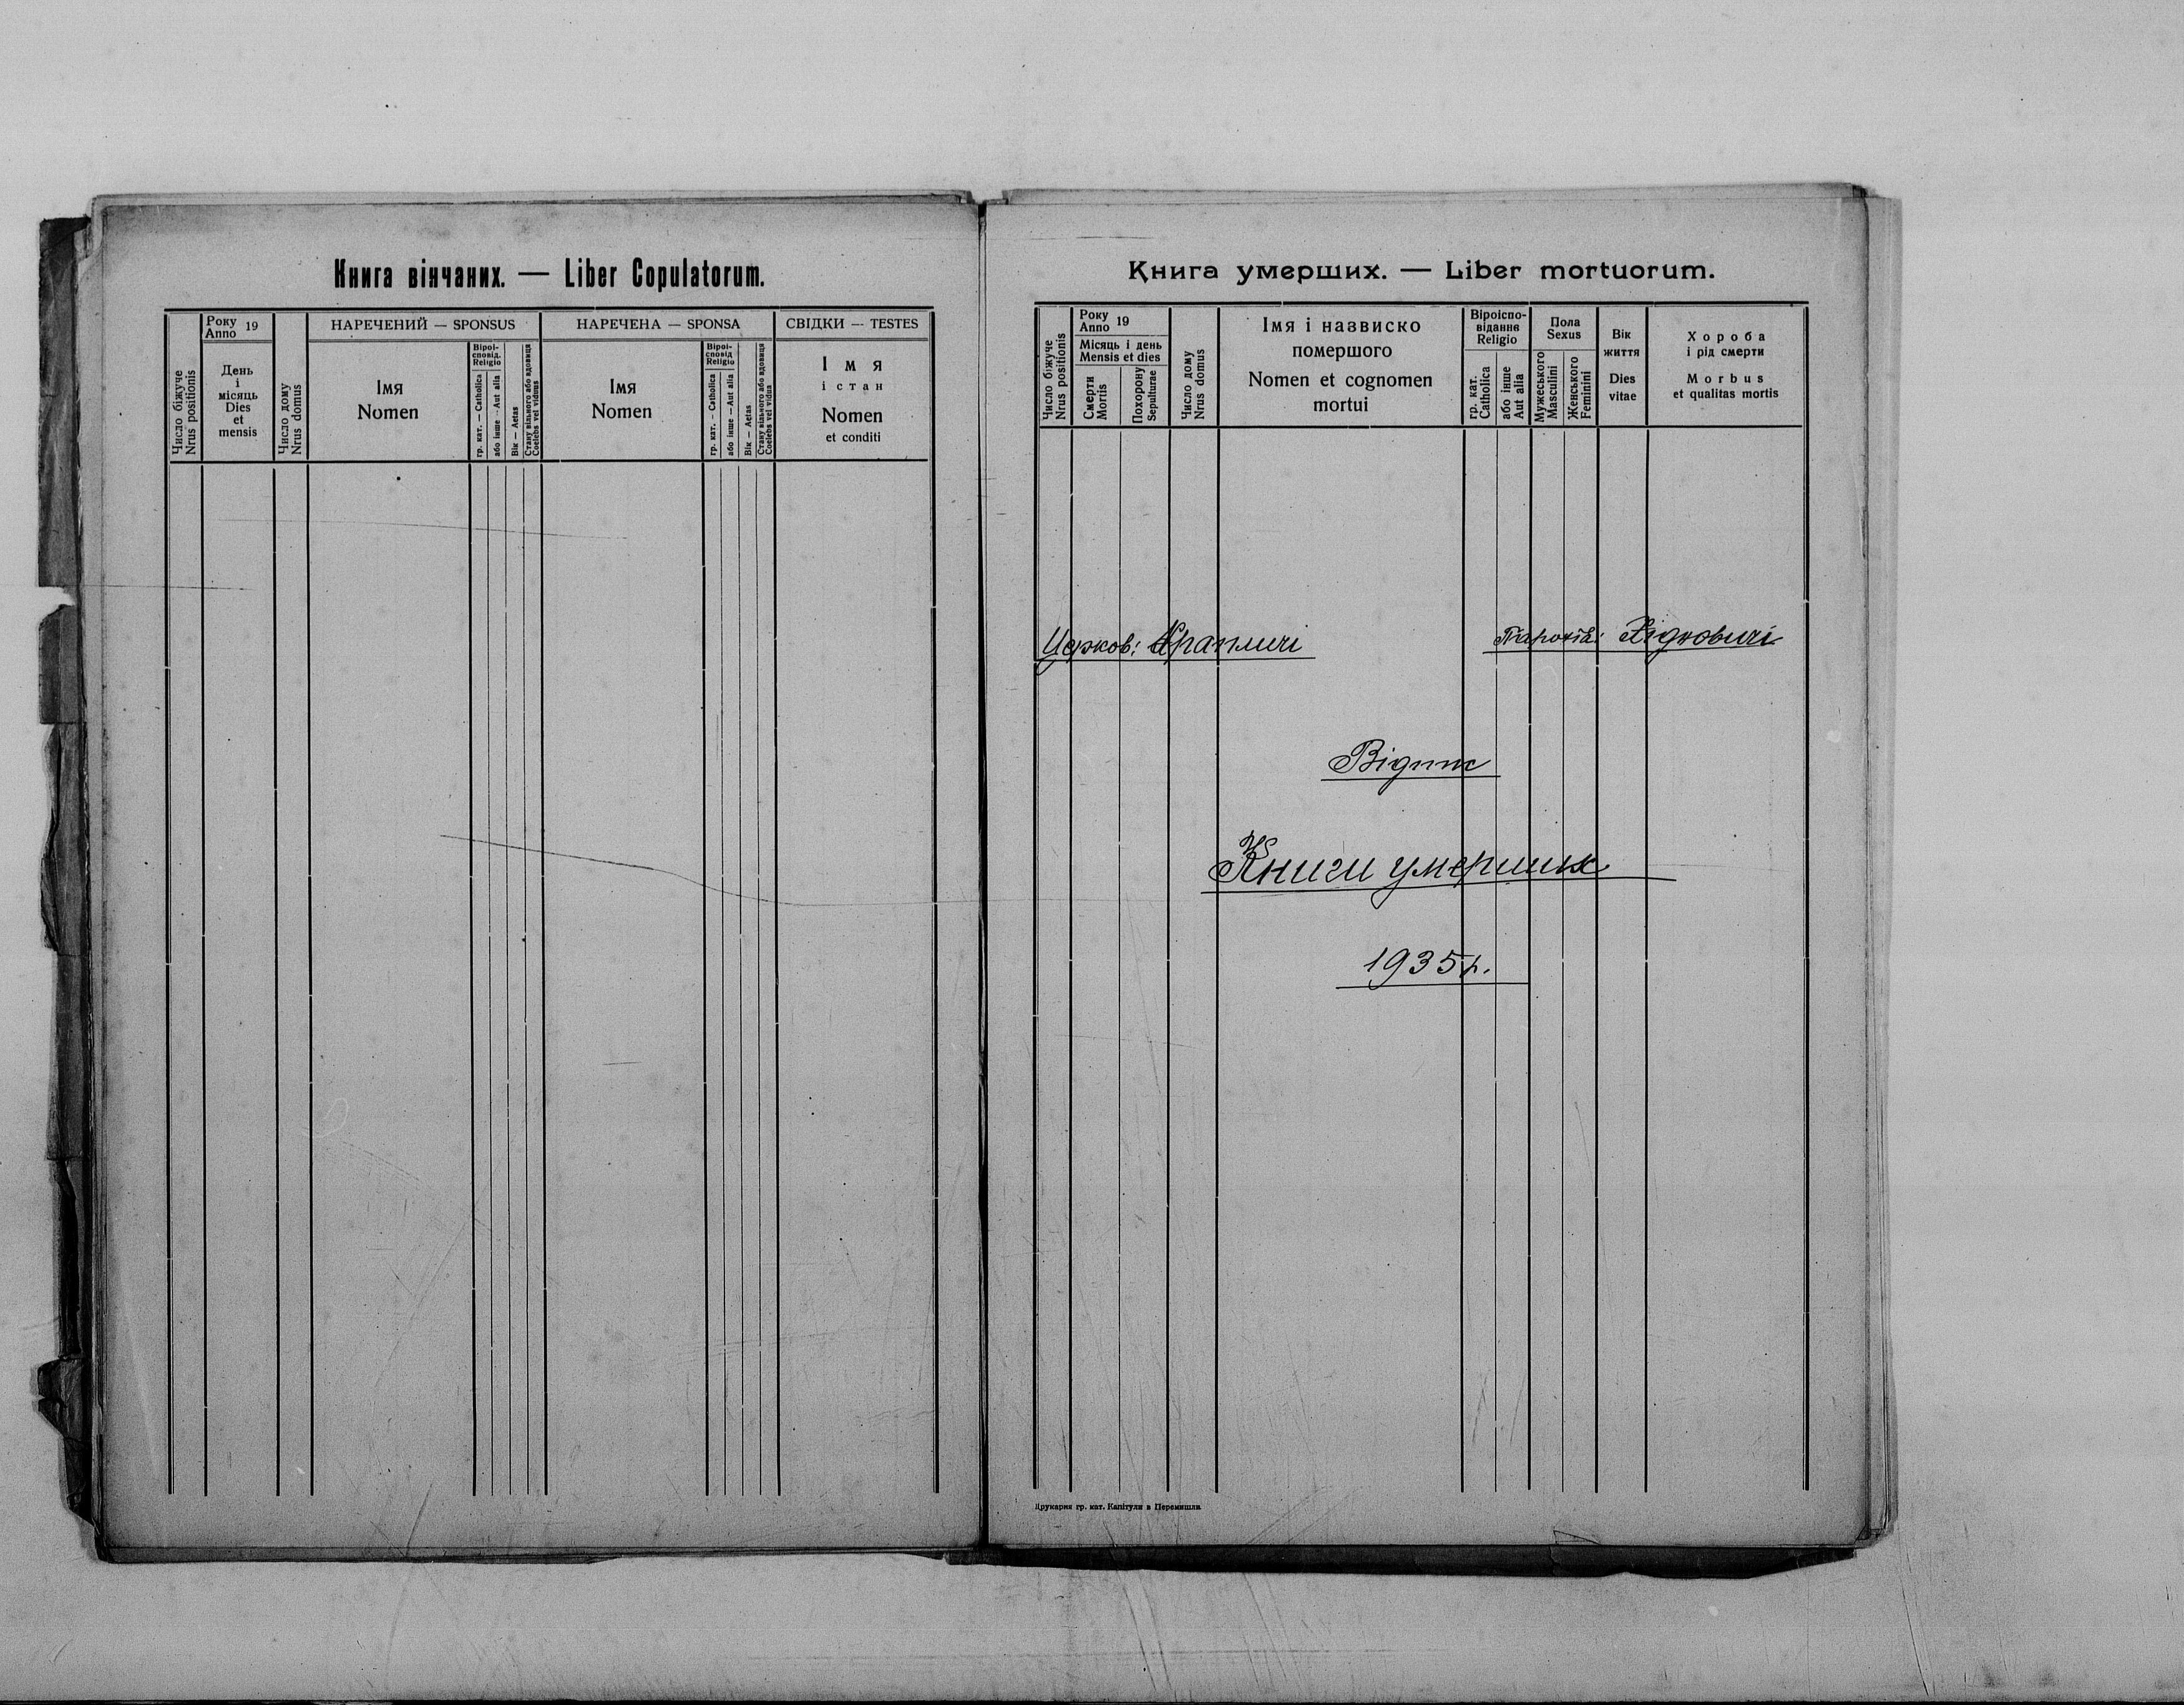 Книга вінчаних. — Liber Copulatorum.
Число біжуче
Nrus positionis
Року
Anno 19
День
і
місяць
Dies
et
mensis
Число дому
Nrus domus
НАРЕЧЕНИЙ — SPONSUS
Імя
Nomen
Віроі-
сповід.
Religio
гр. кат. — Catholica
або інше — Aut alia
Вік — Aetas
Стану вільного або вдовиця
Coelebs vel vidua
НАРЕЧЕНА — SPONSA
Імя
Nomen
Віроі-
сповід
Religio
гр. кат. — Catholica
або інше — Aut alia
Вік — Aetas
Стану вільного або вдовиця
Coelebs vel vidua
СВІДКИ — TESTES
Імя
і стан
Nomen
et conditi
Книга умерших. — Liber mortuorum.
Число біжуче
Nrus positionis
Року
Anno 19
Місяць і день
Mensis et dies
Смерти
Mortis
Похорону
Sepulturae
Число дому
Nrus domus
Імя і назвиско
помершого
Nomen et cognomen
mortui
Віроіспо-
відання
Religio
гр. кат.
Catholica
або інше
Aut alia
Пола
Sexus
Мужеського
Masculini
Женського
Feminini
Вік
життя
Dies
vitae
Хороба
і рід смерти
Morbus
et qualitas mortis
Церков: Храпличі Парохія: Хідновичі
Відпис
Книги умерших
1935 р.
Друкарня гр. кат. Капітули в Перемишли.